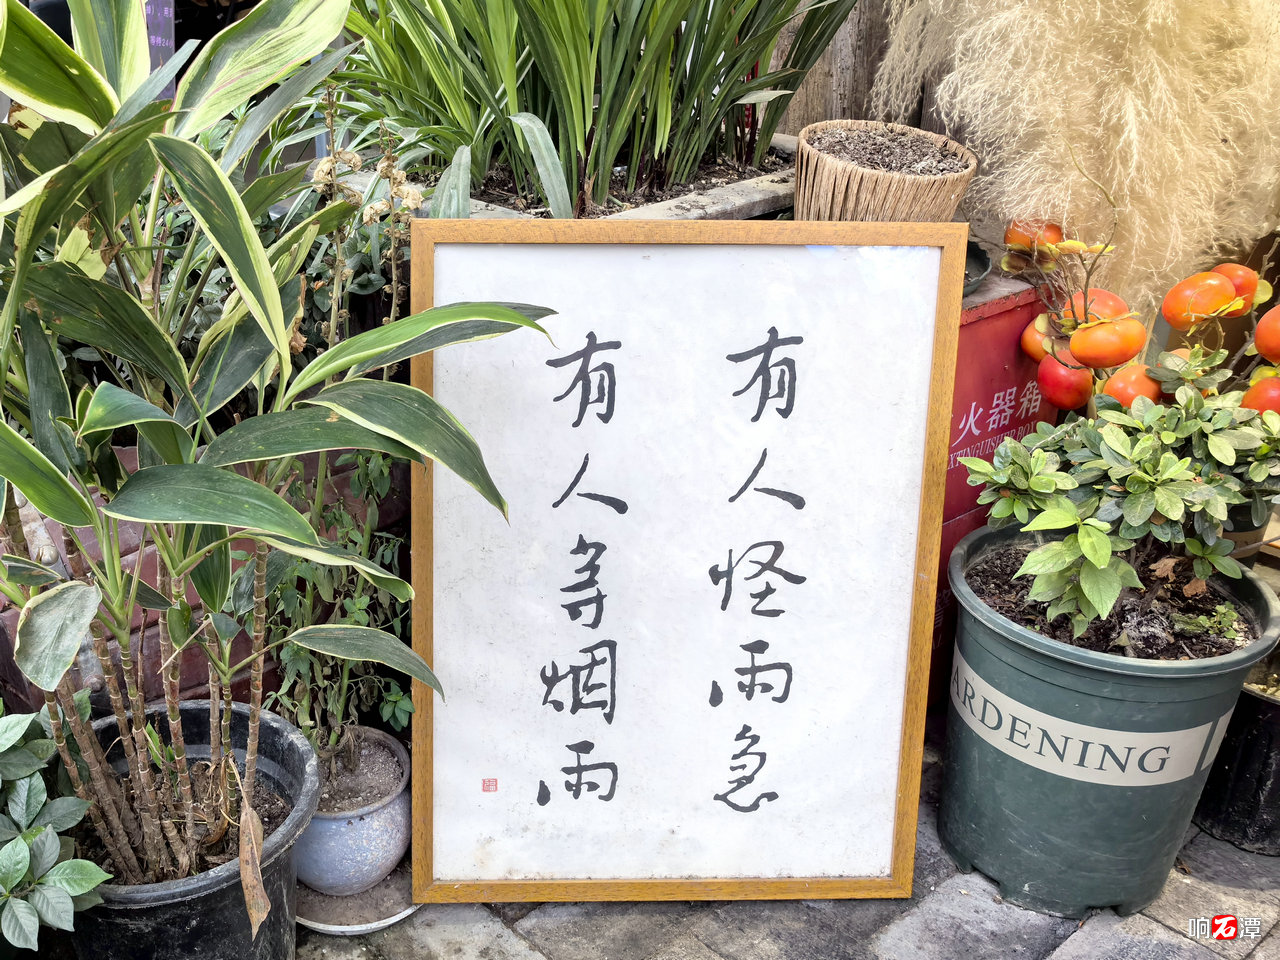 有人怪雨急
有人寻烟雨
火器箱
EXTINGUISHER BOX
ARDENING
响石潭